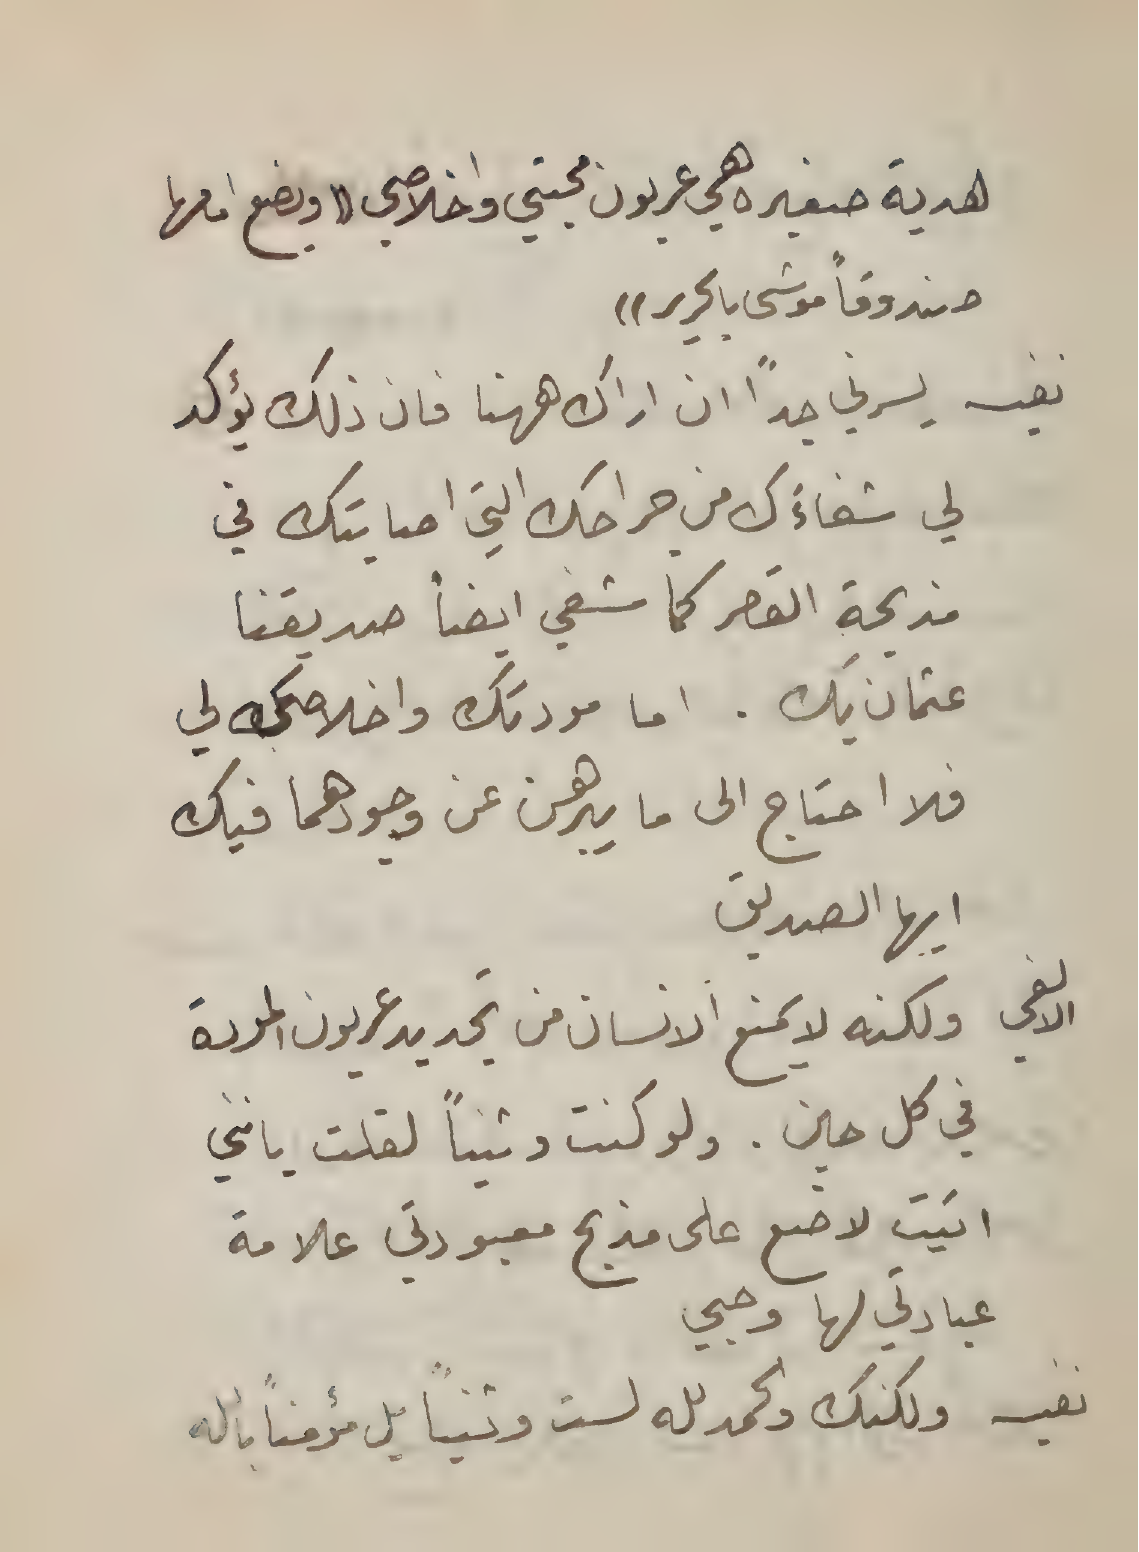 هدية صغيره هي عربون محبتي واخلاصي (( ويضع امامها
صندوقاً موشى بالحرير ))
نفيسه يسرني جداً ان اراك ههنا فان ذلك يؤكد
لي شفاءَك من جراحك التي اصابتك في
مذبحة القصر كما شفي ايضاً صديقنا
عثمان بك . اما مودتك واخلاصك لي
فلا احتاج الى ما يبرهن عن وجودهما فيك
ايها الصديق
الالفي ولكنه لا يمنع الانسان من تجديد عربون المودة
في كل حين . ولو كنت وثنياً لقلت بانني
اتيت لاضع على مذبح معبودتي علامة
عبادتي لها وحبي
نفيسه ولكنك والحمد لله لست وثنياً بل مؤمناً بالله